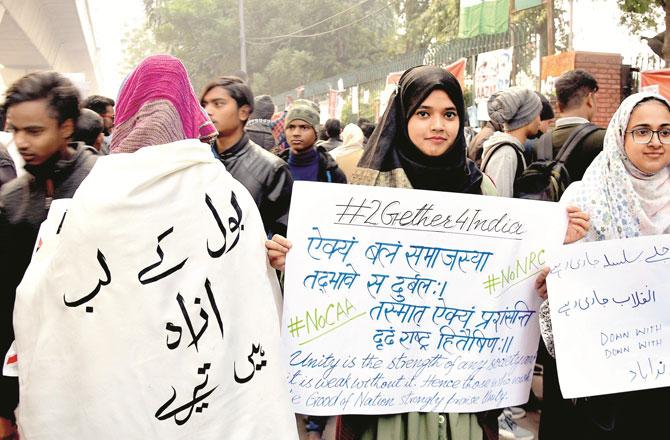 بول
کے لب
ازاد
ہیں
تیرے
#2Gether4India
ऐक्यं बलं समाजस्य
तद्भावे स दुर्बलः।
#NoNRC
#NoCAA
तस्मात् ऐक्यं प्रशंसन्ति
दृढं राष्ट्र हितैषिणः॥
Unity is the strength of any society and
it is weak without it. Hence those who want
e Good of Nation strongly praise Unity
سلسلہ جاری رہے
انقلاب جاری رہے
DOWN WITH
DOWN WITH